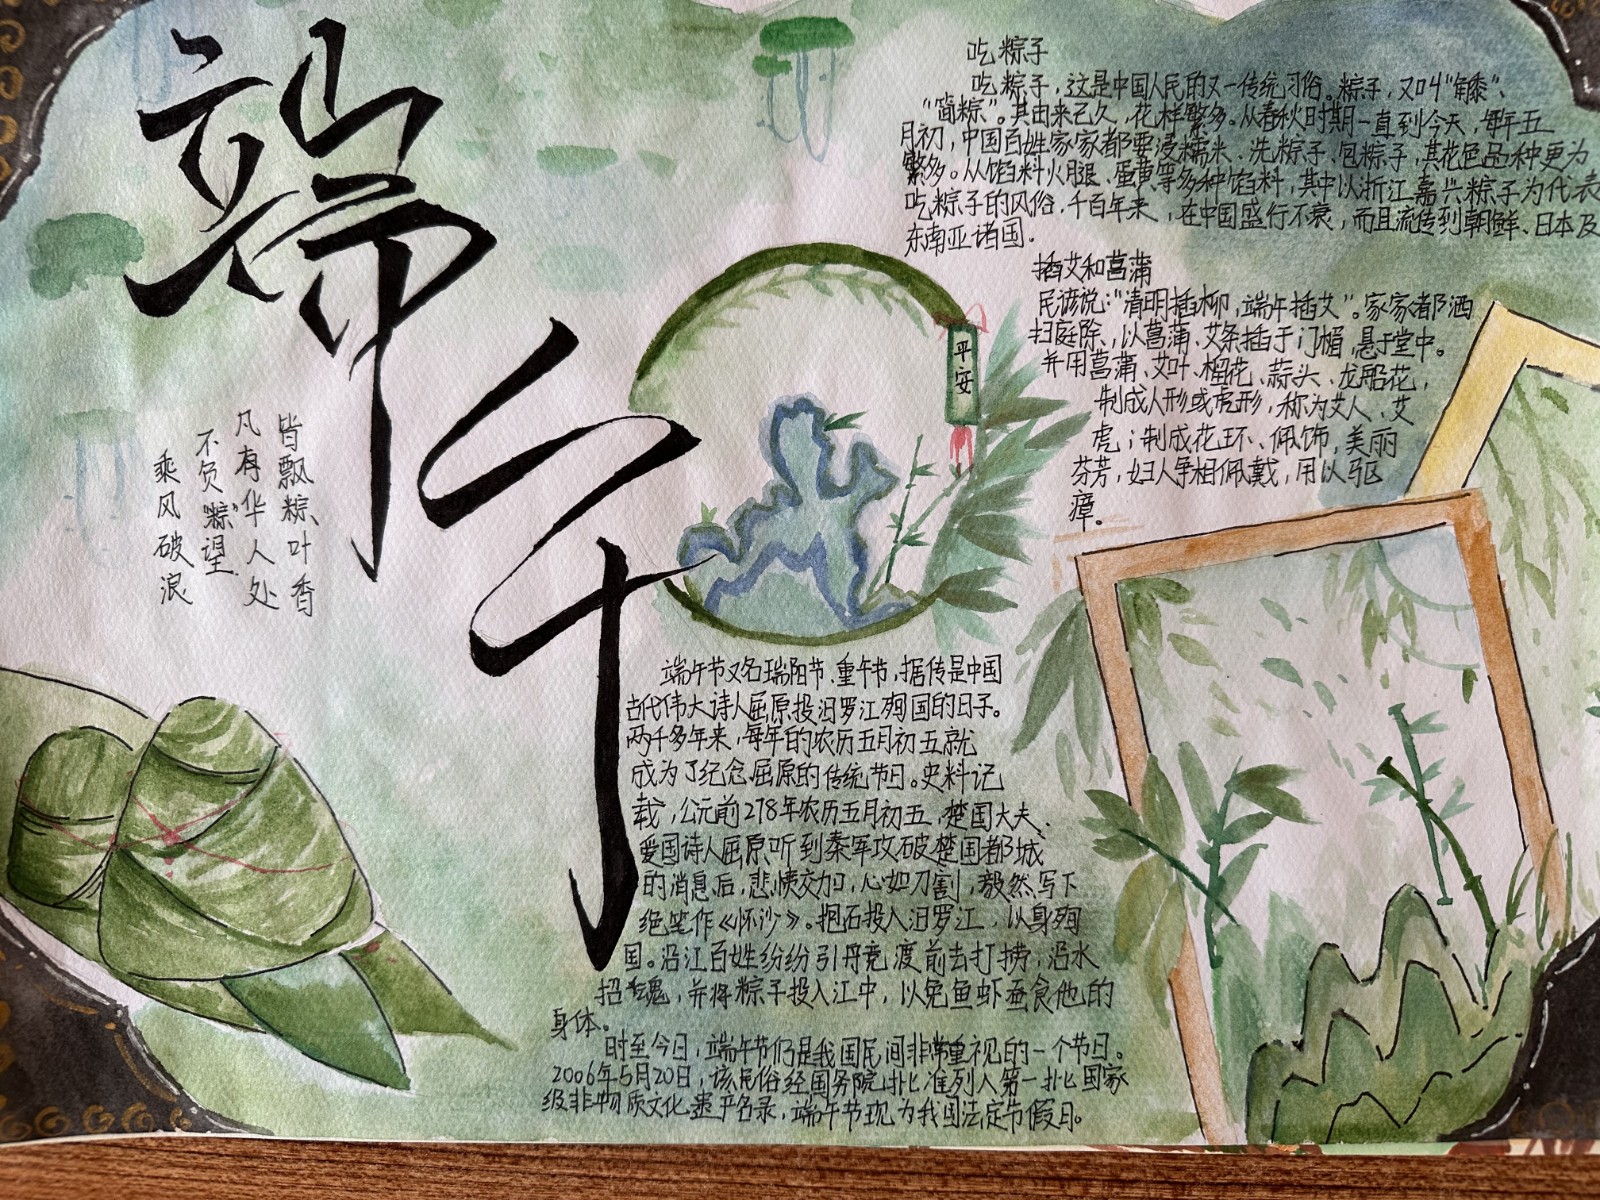 端午
皆飘粽叶香
凡有华人处
不负“粽”望
乘风破浪
平安
吃粽子
吃粽子，这是中国人民的又一传统习俗。粽子，又叫“角黍”、
“筒粽”。其由来已久，花样繁多。从春秋时期一直到今天，每年五
月初，中国百姓家家都要浸糯米、洗粽子、包粽子，其花色品种更为
繁多。从馅料火腿、蛋黄等多种馅料，其中以浙江嘉兴粽子为代表
吃粽子的风俗，千百年来，在中国盛行不衰，而且流传到朝鲜、日本及
东南亚诸国．
插艾和菖蒲
民谚说：“清明插柳，端午插艾”。家家都洒
扫庭除，以菖蒲、艾条插于门楣，悬于堂中。
并用菖蒲、艾叶、榴花、蒜头、龙船花，
制成人形或虎形，称为艾人、艾
虎；制成花环、佩饰，美丽
芬芳，妇人争相佩戴，用以驱
瘴。
端午节又名瑞阳节、重午节，据传是中国
古代伟大诗人屈原投汨罗江殉国的日子。
两千多年来，每年的农历五月初五就
成为了纪念屈原的传统节日。史料记
载，公元前278年农历五月初五，楚国大夫、
爱国诗人屈原听到秦军攻破楚国都城
的消息后，悲愤交加，心如刀割，毅然写下
绝笔作《怀沙》。抱石投入汨罗江，以身殉
国。沿江百姓纷纷引舟竞渡前去打捞，沿水
招魂，并将粽子投入江中，以免鱼虾蚕食他的
身体。
时至今日，端午节仍是我国民间非常重视的一个节日。
2006年5月20日，该民俗经国务院批准列入第一批国家
级非物质文化遗产名录，端午节现为我国法定节假日。